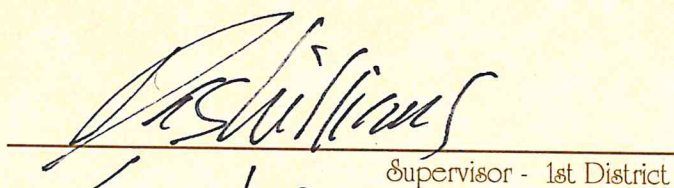 Das Williams
Supervisor - 1st District